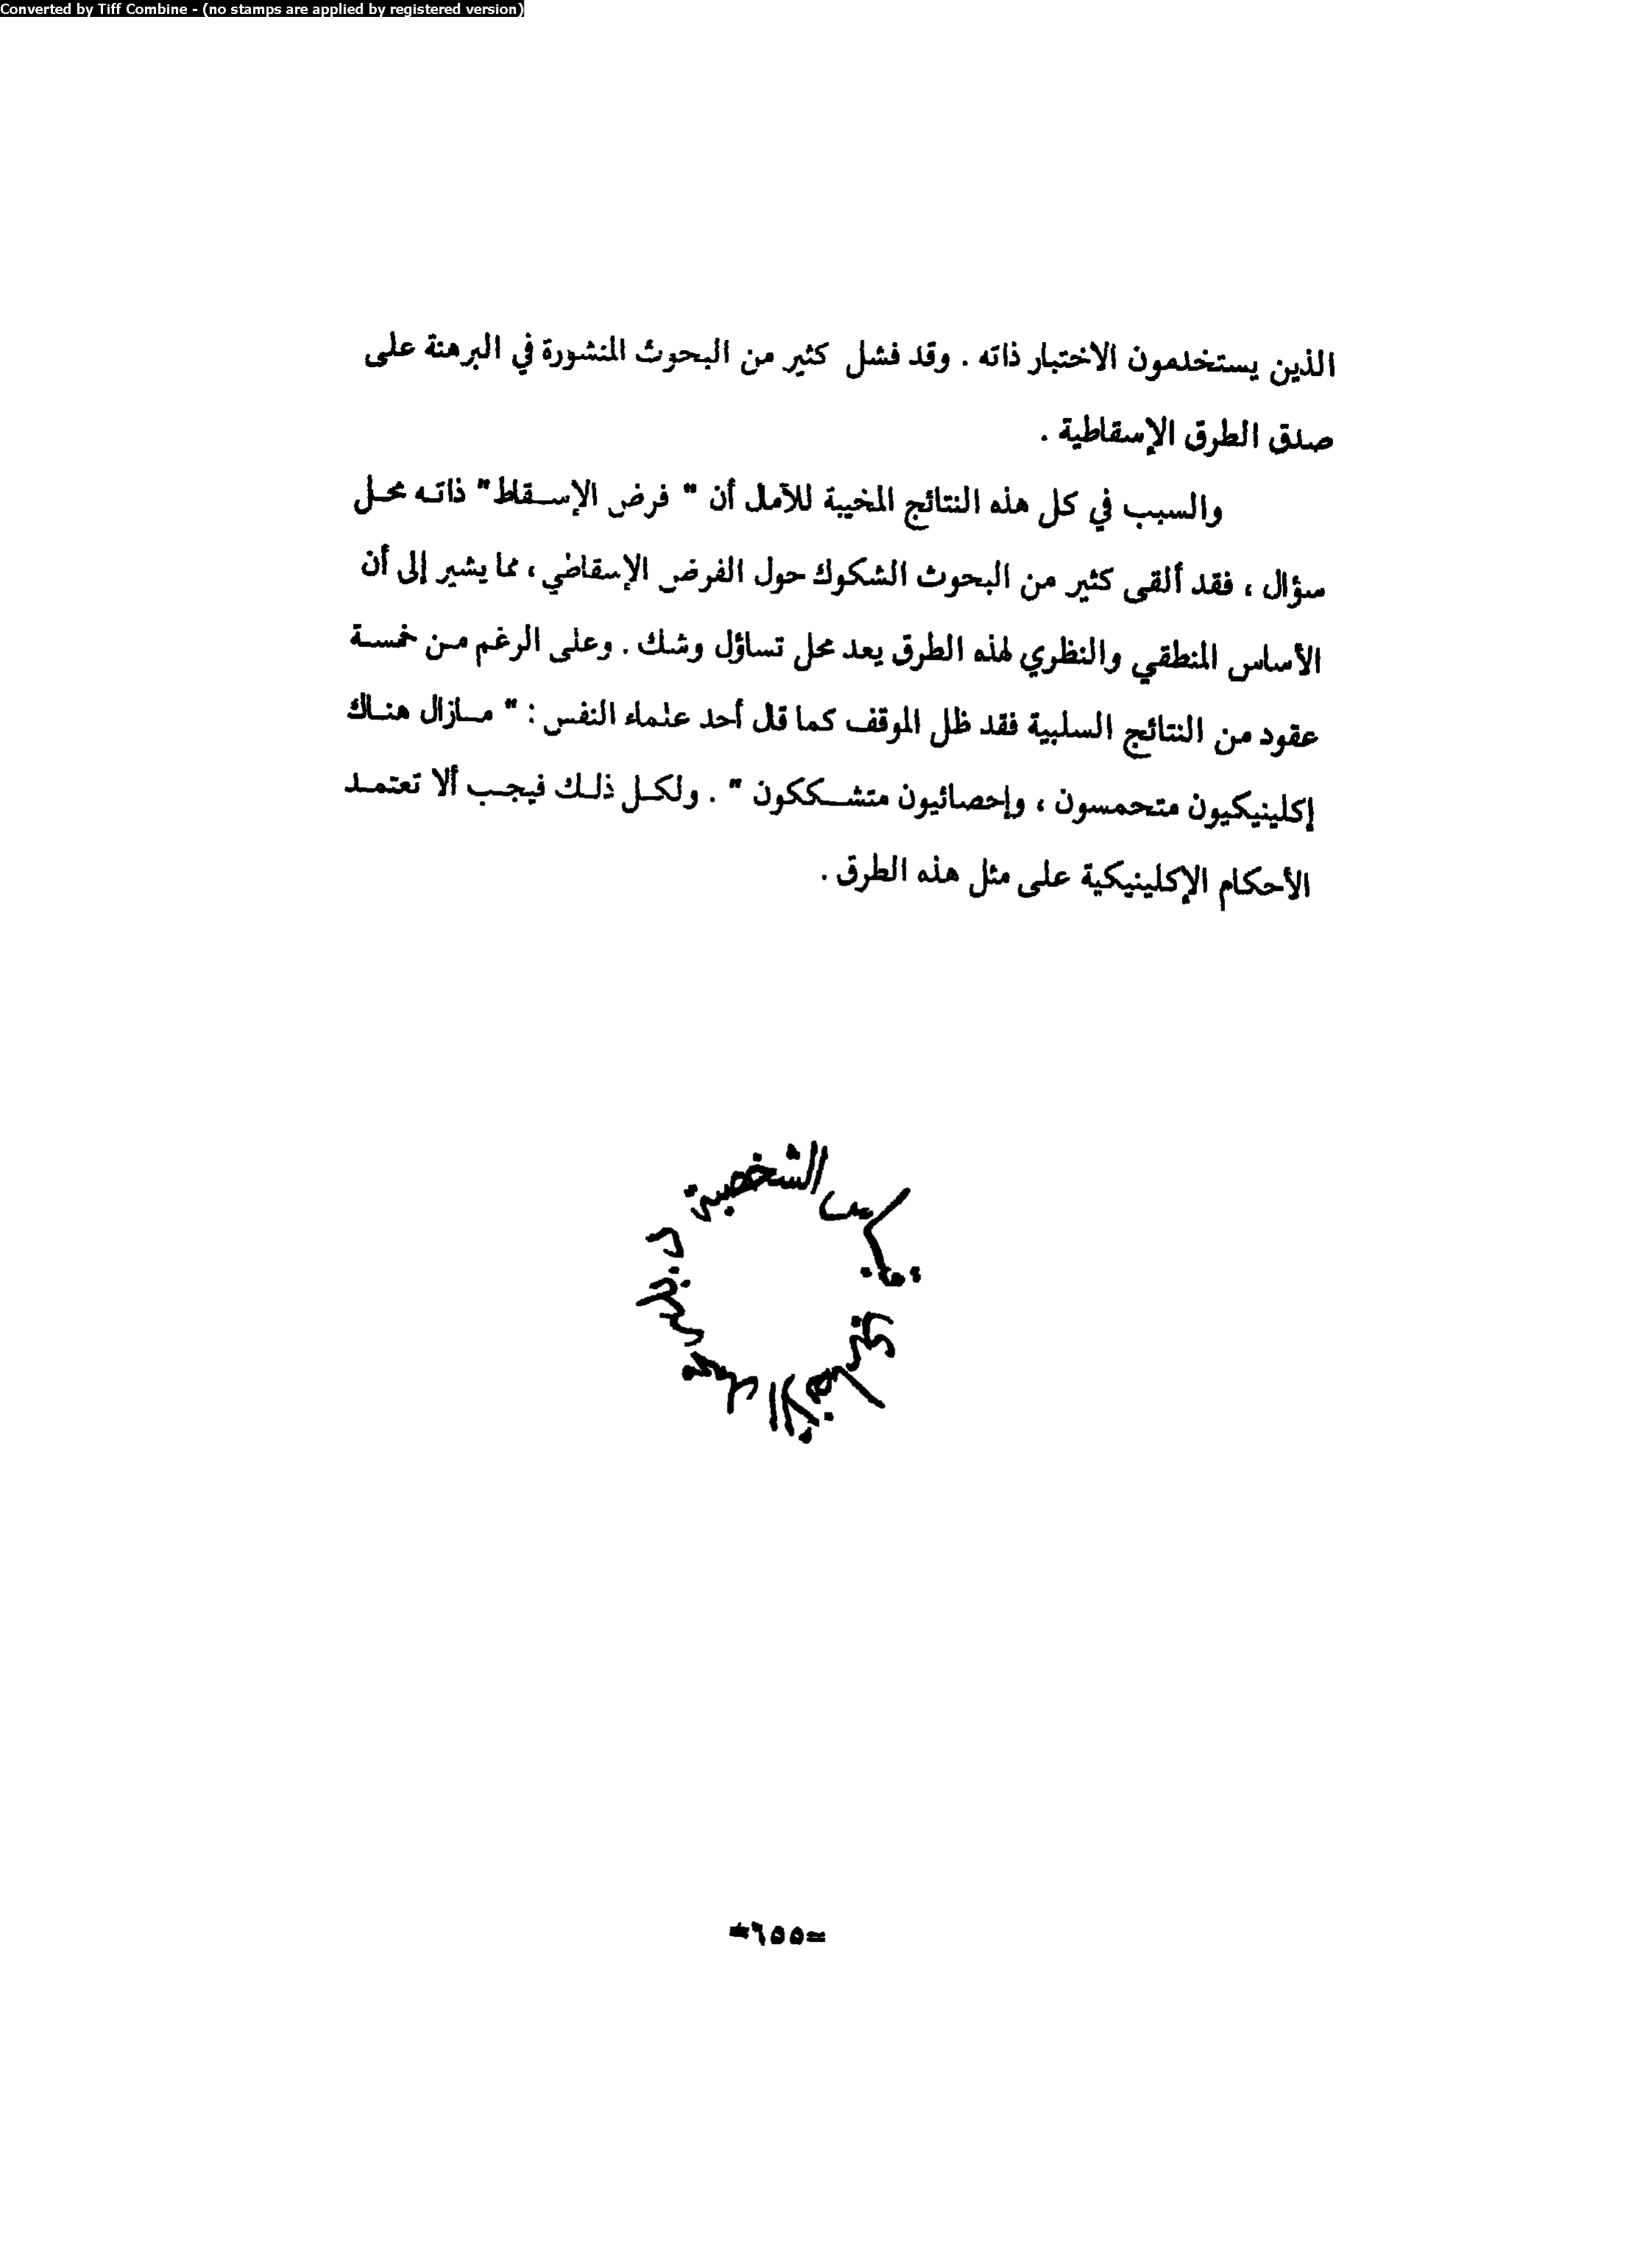 Converted by Tiff Combine - (no stamps are applied by registered version)
الذين يستخدمون الاختبار ذاته . وقد فشل كثير من البحوث المنشورة في البرهنة على
صدق الطرق الإسقاطية .
والسبب في كل هذه النتائج المخيبة للآمال أن " فرض الإسقاط" ذاته محل
سؤال ، فقد ألقى كثير من البحوث الشكوك حول الفرض الإسقاطي ، مما يشير إلى أن
الأساس المنطقي والنظري لهذه الطرق يعد محل تساؤل وشك . وعلى الرغم من خمسة
عقود من النتائج السلبية فقد ظل الموقف كما قال أحد علماء النفس : " مازال هناك
إكلينيكيون متحمسون ، وإحصائيون متشككون " . ولكل ذلك فيجب ألا تعتمد
الأحكام الإكلينيكية على مثل هذه الطرق .
الشخصية
=٦٥٥=